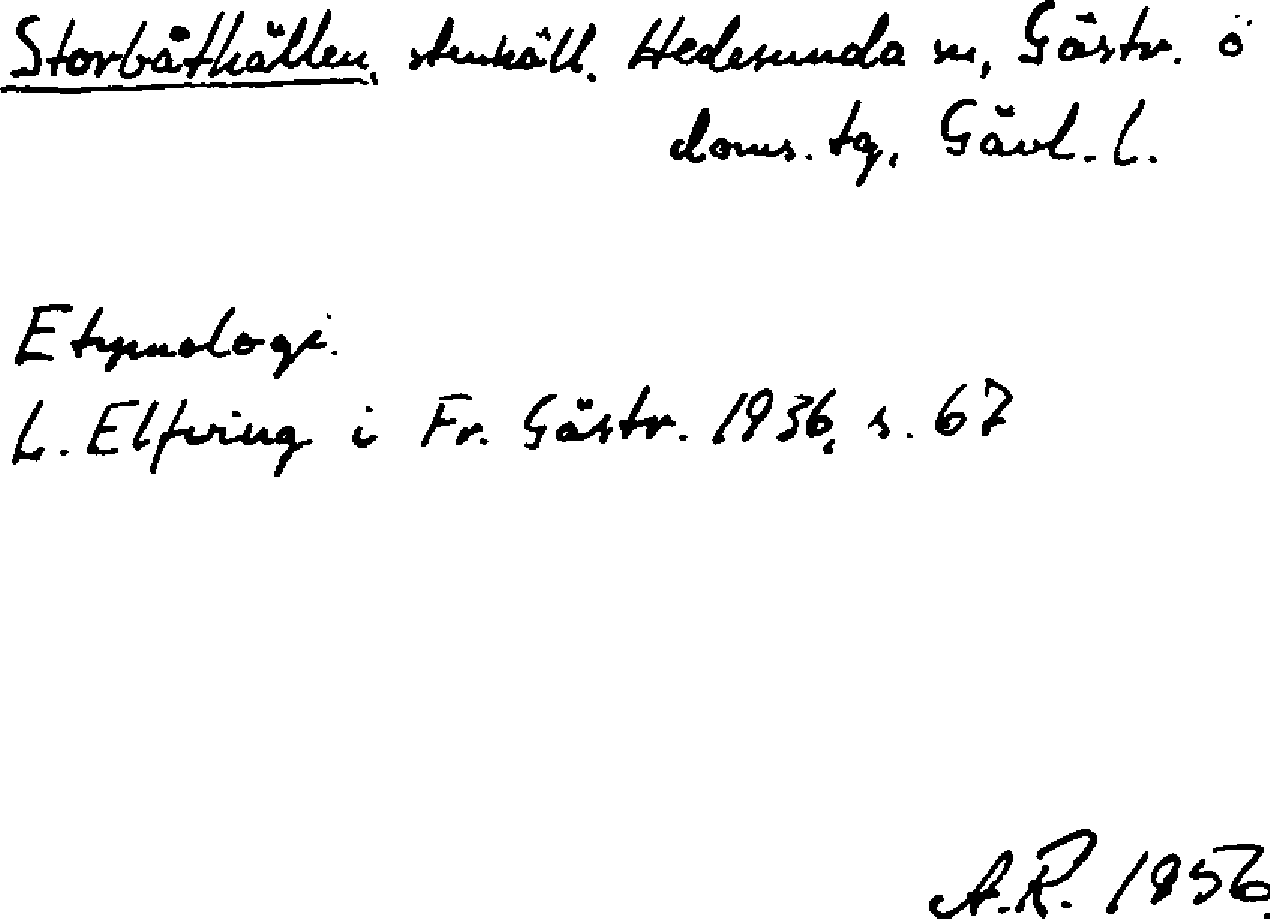 Storbåthällen, stenhäll. Hedesunda sn, Gästr. ö
doms. tg, Gävl. l.
Etymologi.
L. Elfving i Fr. Gästr. 1936, s. 67
A.R. 1956.